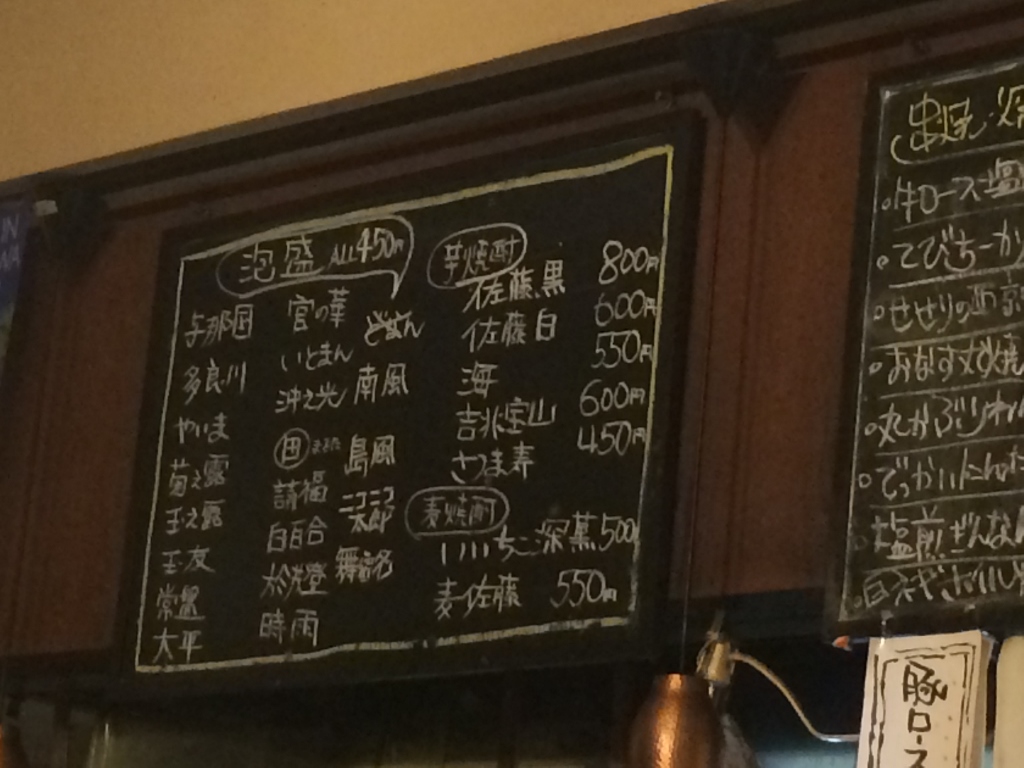 泡盛 ALL450円
与那国
多良川
やいま
菊之露
玉之露
玉友
常盤
太平
宮の華
いとまん
沖之光
請福
白百合
於茂登
時雨
どなん
南風
島風
ニコニコ
太郎
舞富名
芋焼酎
佐藤黒 800円
佐藤白 600円
海 550円
吉兆宝山 600円
さつま寿 450円
麦焼酎
いいちこ深黒500
麦佐藤 550円
串焼
牛ロース塩
てびちーか
せせりの西京
おなすすめ焼
でっかいにんにく
豚ロース